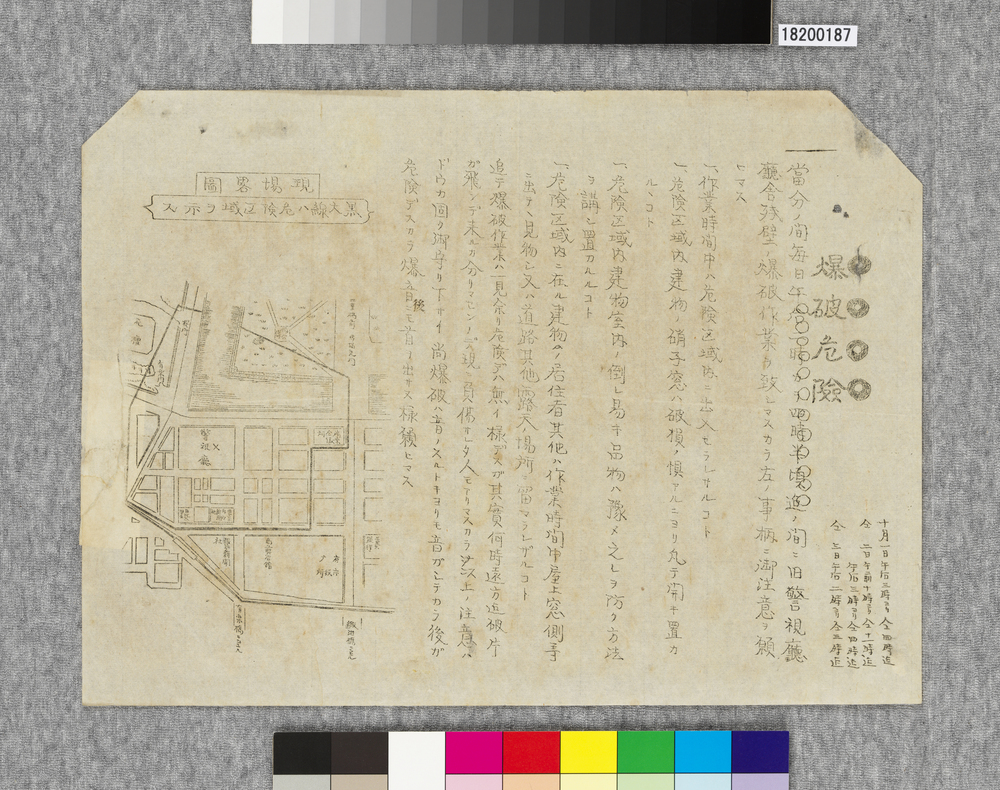 18200187
十月一日午后三時ヨリ仝四時迄
仝 二日午前十時ヨリ仝十一時迄
午后三時ヨリ仝四時迄
仝 三日午后二時ヨリ仝三時迄
爆破危險
一 當分ノ間毎日午后
四時半頃迄ノ間ニ旧警視廳
廳舎残壁ノ爆破作業ヲ致シマスカラ左ノ事柄ニ御注意ヲ願
ヒマス
一、作業時間中ハ危険区域内ニ出入セラレサルコト
一、危険区域内建物ノ硝子窓ハ破損ノ惧アルニヨリ凡テ開キ置カ
ルヽコト
一、危険区域内建物室内ノ倒レ易キ品物ハ豫メ之レヲ防ク方法
ヲ講シ置カルルコト
一、危険区域内ニ在ル建物ノ居住者其他ハ作業時間中屋上窓側等
ニ出テ見物シ又ハ道路其他露天ノ場所ニ留マラレザルコト
追テ爆破作業ハ一見余リ危険デハ無イ様デスガ其實何時遠方迄破片
ガ飛ンデ来ルカ分リマセンノデ現ニ負傷サレタ人モアリマスカラ以上ノ注意ハ
ドウカ固ク御守リ下サイ 尚爆破ハ音ノスルトキヨリモ音ガシテカラ後ガ
危険デスカラ爆音後
様願ヒマス
現場畧圖
黒太線ハ危険区域ヲ示ス
警視廳